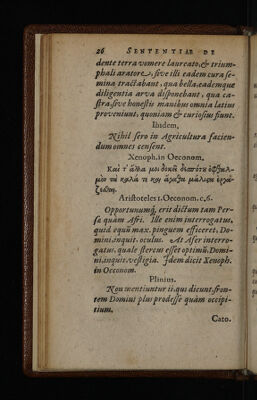 26 SENTENTIAE DE
dente terra vomere laureato, & trium-
phali aratore, sive illi eadem cura se-
mina tractabant, qua bella, eademque
diligentia arva disponebant, qua ca-
stra, sive honestis manibus omnia latius
proveniunt, quoniam & curiosius fiunt.
Ibidem,
Nihil sero in Agricultura facien-
dum omnes censent.
Xenoph. in Oeconom.
Καὶ τ' ἄλλα μοι δοκεῖ
Aristoteles 1. Oeconom. c. 6.
Opportunumq́; erit dictum tam Per-
sa quàm Afri. Ille enim interrogatus,
quid equũ max. pinguem efficeret, Do-
mini, inquit, oculus. At Afer interro-
gatus, quale stercus esset optimũ, Domi-
ni, inquit, vestigia. Idem dicit Xenoph.
in Oeconom.
Plinius.
Non mentiuntur ii, qui dicunt, fron-
tem Domini plus prodesse quàm occipi-
tium.
Cato.